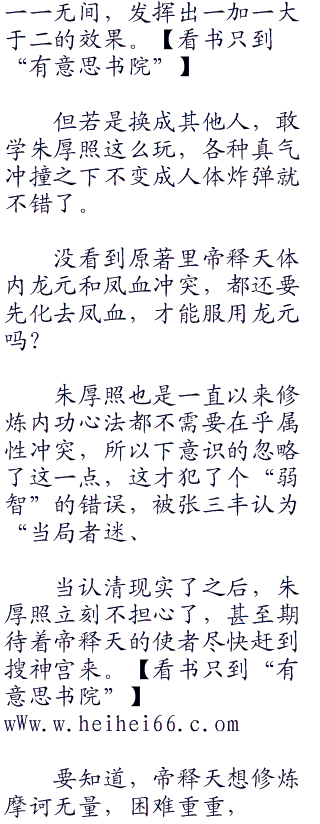 一一无间，发挥出一加一大
于二的效果。【看书只到
“有意思书院”】
但若是换成其他人，敢
学朱厚照这么玩，各种真气
冲撞之下不变成人体炸弹就
不错了。
没看到原著里帝释天体
内龙元和凤血冲突，都还要
先化去凤血，才能服用龙元
吗？
朱厚照也是一直以来修
炼内功心法都不需要在乎属
性冲突，所以下意识的忽略
了这一点，这才犯了个“弱
智”的错误，被张三丰认为
“当局者迷、
当认清现实了之后，朱
厚照立刻不担心了，甚至期
待着帝释天的使者尽快赶到
搜神宫来。【看书只到“有
意思书院”】
wWw.w.heihei66.c.om
要知道，帝释天想修炼
摩诃无量，困难重重，